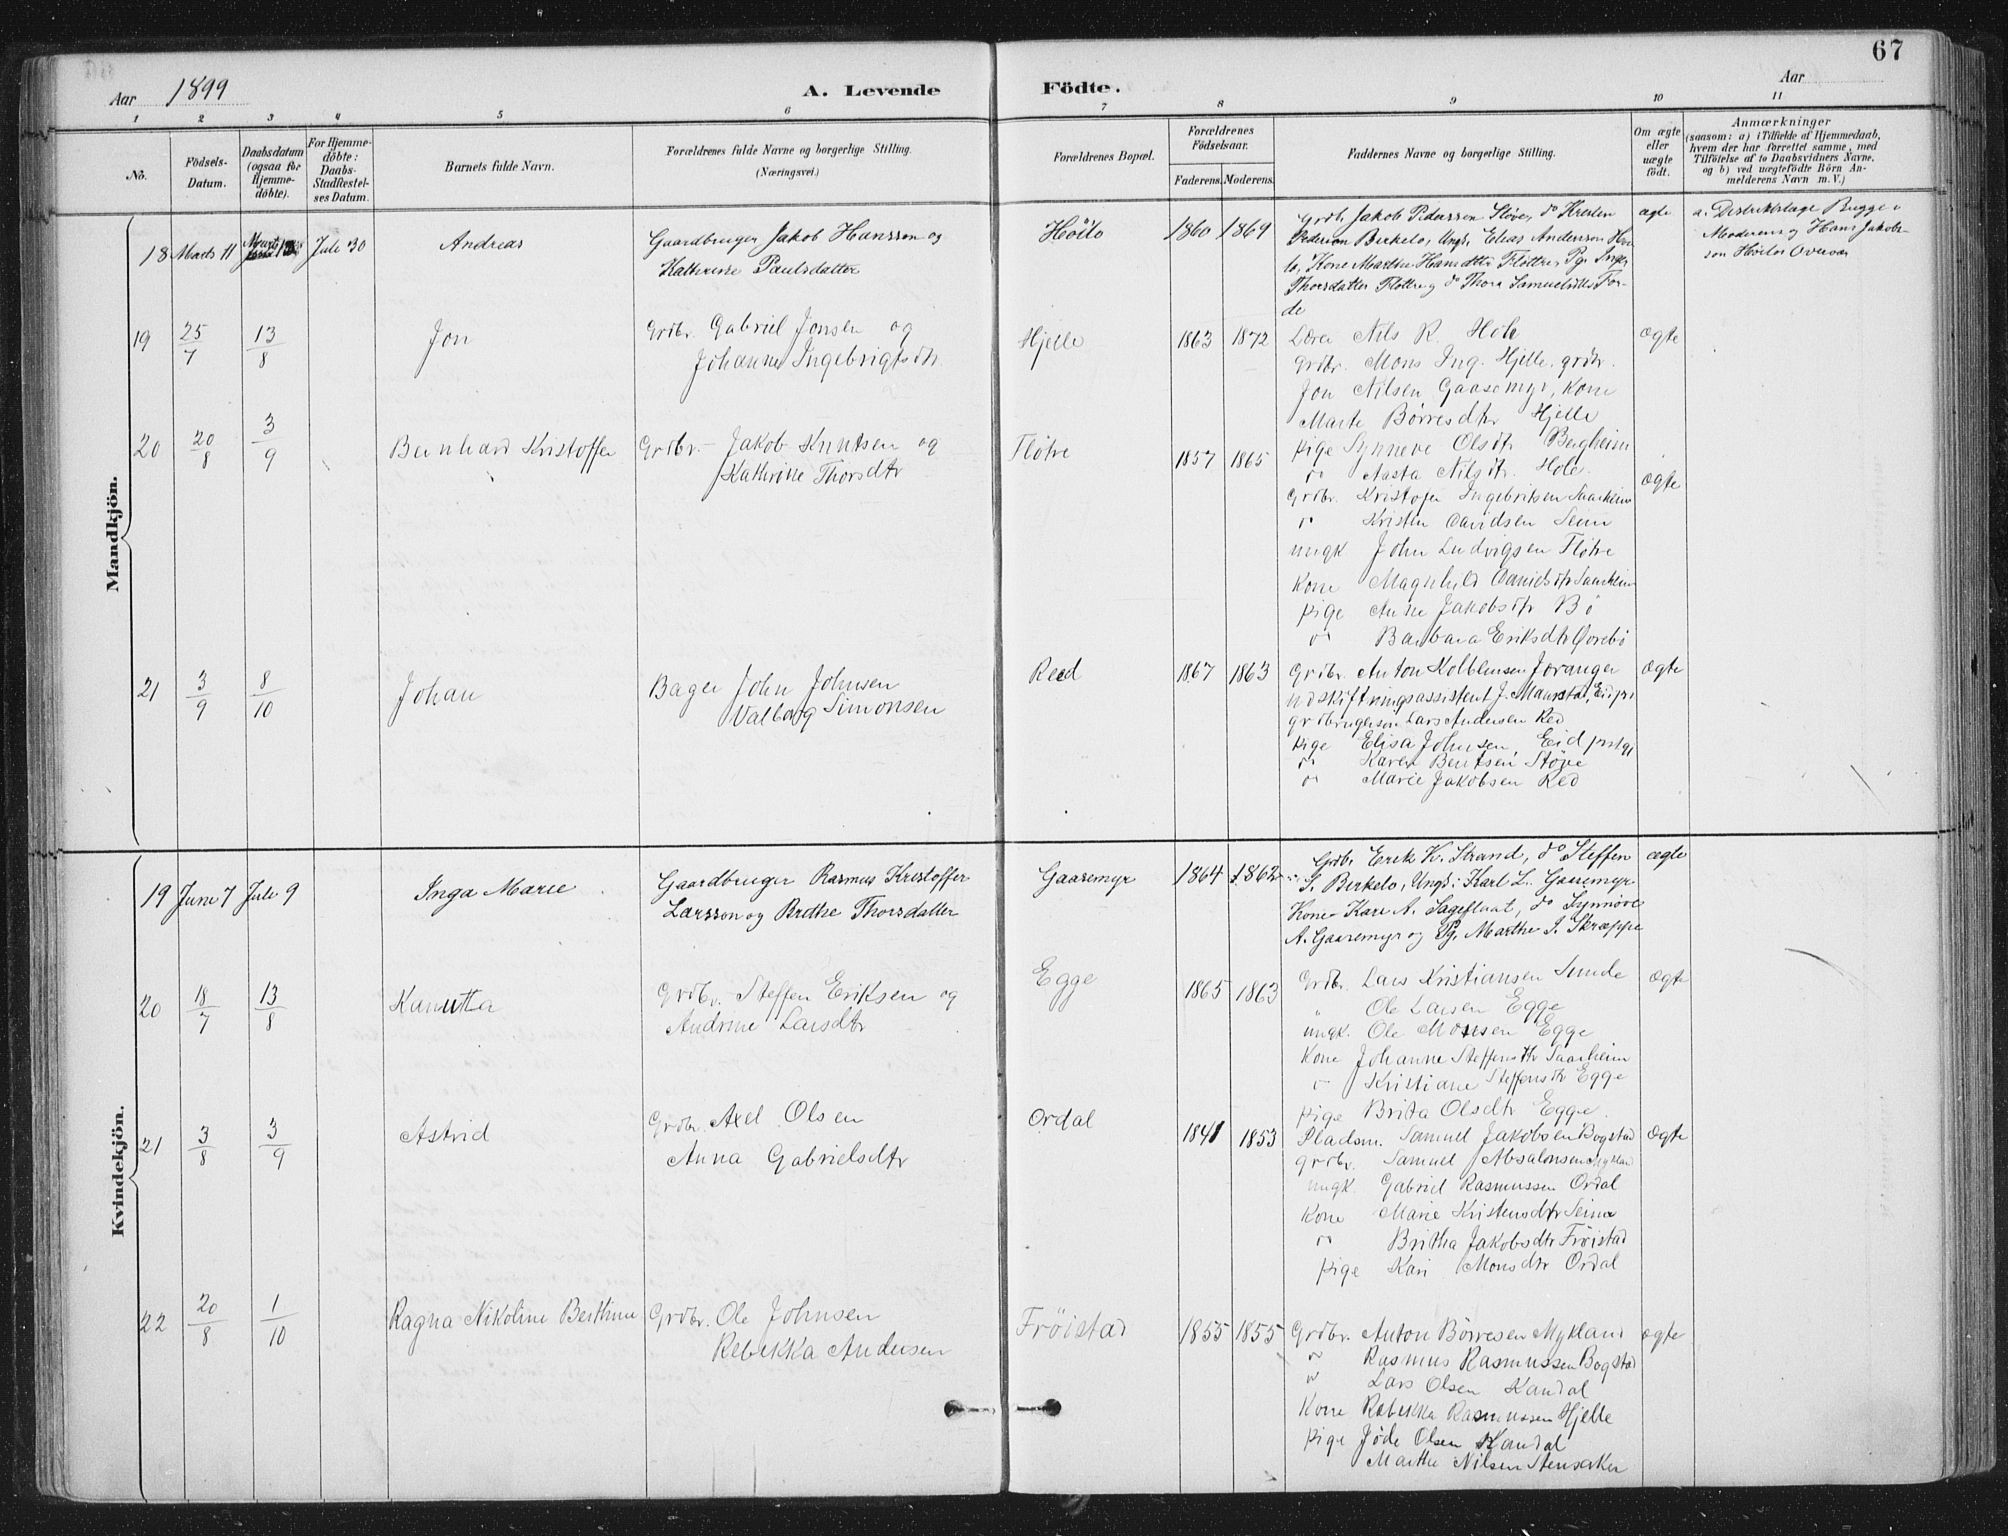 67
Aar 1899
A. Levende
Födte.
Aar
1 2 3 4 5 6 7 8 9 10 11
No.
Födsels-
Datum.
Daabsdatum
(ogsaa for
Hjemme-
döbte).
For Hjemme-
döbte:
Daabs-
Stadfæstel-
ses Datum.
Barnets fulde Navn.
Forældrenes fulde Navne og borgerlige Stilling.
(Næringsvei.)
Forældrenes Bopæl.
Forældrenes
Födselsaar.
Faderens. Moderens.
Faddernes Navne og borgerlige Stilling.
Om ægte
eller
uægte
födt.
Anmærkninger
(saasom: a) i Tilfælde af Hjemmedaab,
hvem der har forrettet samme, med
Tilföielse af to Daabsvidners Navne,
og b) ved uægtefödte Börn An-
melderens Navn m. V.)
Mandkjön.
18 Marts 11
Juli 30
Andreas
Gaardbruger Jakob Hansson og
Kathrine Paulsdatter
Höilo
1860 1869
Grdb. Jakob Pederssen Slöve, do Kristen
Pederson Birkelo, Ungk. Elias Andersson Höi-
lo, Kone Marthe Hansdtter Flöttre, Pg. Inger
Thorsdatter Flöttre og do Thora Samuelsdtt. For-
de
ægte
a. Distriktslæge Bugge,
Moderen og Hans Jakob-
son Höilo Overvar
19 25/7 13/8
Jon
Grdbr. Gabriel Jonsen og
Johanne Ingebrigtsdtr.
Hjelle
1863 1872
Lærer Nils R. Hole
Grdbr. Mons Ing. Hjelle, grdbr.
Jon Nilsen Gaasemyr, Kone
Marte Börresdtr Hjelle
pige Synneve Olsdtr Bergheim
do Aasta Nilsdtr. Hole.
ægte
20 20/8 3/9
Bernhard Kristoffer
Grdbr. Jakob Knutsen og
Kathrine Thorsdtr
Flötre
1857 1865
Grdbr. Kristofer Ingebriksen Saarheim
do Kristen Davidsen Seim
ungk John Ludvigsen Flötre
Kone Magnhild Danielsdtr Saarheim
pige Anne Jakobsdtr Bö
do Barbara Eriksdtr Övrebö
ægte
21 3/9 8/10
Johan
Bager John Johnsen
Valborg Simonsen
Reed
1867 1863
Grdbr. Anton Kolbensen Joranger
Udskiftningsassistent J. Maurstad, Eid pr
grdbrugerson Lars Andersen Red
pige Elisa Johnsen, Eid prstgj
do Karen Bentsen Stöve
do Marie Jakobsen Red
ægte
Kvindekjön.
19 Juni 7 Juli 9
Inga Marie
Gaardbruger Rasmus Kristoffer
Larsson og Brithe Thorsdatter
Gaasemyr
1864 1862
Grdb. Erik K. Strand, do Steffen
S. Birkelo, Ungk: Karl L. Gaasemyr
Kone Kari A. Sageflaat, do Synnöve
A. Gaasemyr og Pg. Marthe I. Skræppe
ægte
20 18/7 13/8
Kanutta
Grdbr. Steffen Eriksen og
Andrine Larsdtr
Egge
1865 1863
Grdbr. Lars Kristiansen Sunde
" Ole Larsen Egge
ungk. Ole Monsen Egge
Kone Johanne Steffensdtr Saarheim
do Kristiane Steffensdtr Egge
pige Brita Olsdtr Egge.
ægte
21 3/8 3/9
Astrid
Grdbr. Axel Olsen
Anna Gabrielsdtr
Ordal
1841 1853
Pladsm. Samuel Jakobsen Bogstad
grdbr. Samuel Absalonsen Mykland
ungk. Gabriel Rasmussen Ordal
Kone Marie Kristensdtr Seim
do Britha Jakobsdtr Fröistad
pige Kari Monsdtr Ordal
ægte
22 20/8 1/10
Ragna Nikoline Berthine
Grdbr. Ole Johnsen
Rebekka Andersen
Fröistad
1855 1855
Grdbr. Anton Börresen Mykland
do Rasmus Rasmussen Bogstad
do Lars Olsen Kandal
Kone Rebekka Rasmussen Hjelle
pige Jöde Olsen Kandal
Marthe Nilsen Stensaker
ægte